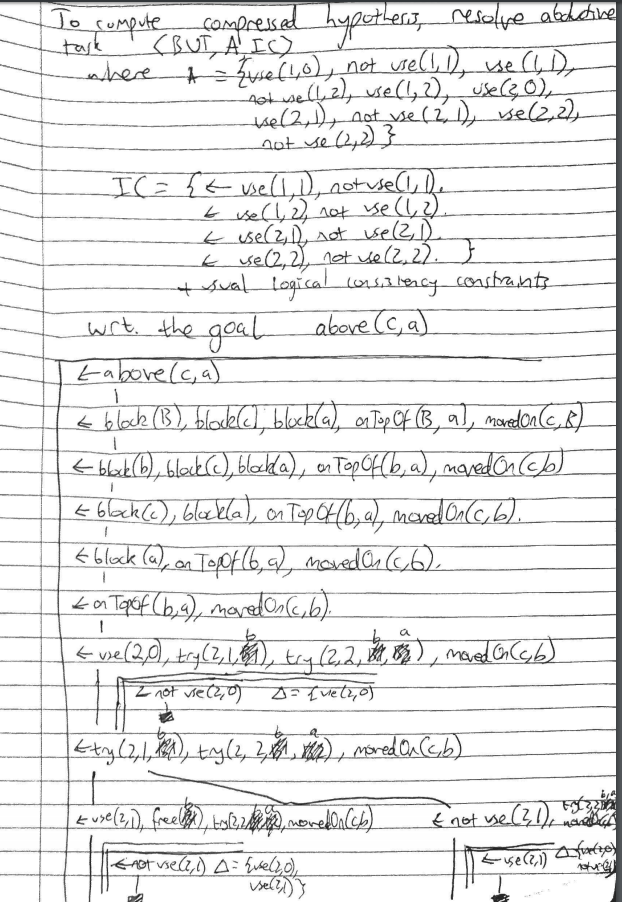 To compute compressed hypothesis, resolve abductive
task <BUT, A, IC>
where A = {use(1,0), not use(1,1), use(1,1),
not use(1,2), use(1,2), use(2,0),
use(2,1), not use(2,1), use(2,2),
not use(2,2)}
IC = {← use(1,1), not use(1,1).
← use(1,2), not use(1,2).
← use(2,1), not use(2,1).
← use(2,2), not use(2,2). }
+ usual logical consistency constraints
wrt. the goal above(c,a)
← above(c,a)
← block(B), block(c), block(a), onTopOf(B, a), movedOn(c,B)
← block(b), block(c), block(a), onTopOf(b,a), movedOn(c,b)
← block(c), block(a), onTopOf(b,a), movedOn(c,b).
← block(a), onTopOf(b,a), movedOn(c,b).
← onTopOf(b,a), movedOn(c,b).
← use(2,0), try(2,1,b), try(2,2,b,a), movedOn(c,b)
← not use(2,0) Δ = {use(2,0)
← try(2,1,b), try(2,2,b,a), movedOn(c,b)
← use(2,1), free(b), try(2,2,b,a), movedOn(c,b)
← not use(2,1), try(2,2,b,a)
← not use(2,1) Δ = {use(2,0),
use(2,1)}
← use(2,1) Δ {use(2,0)